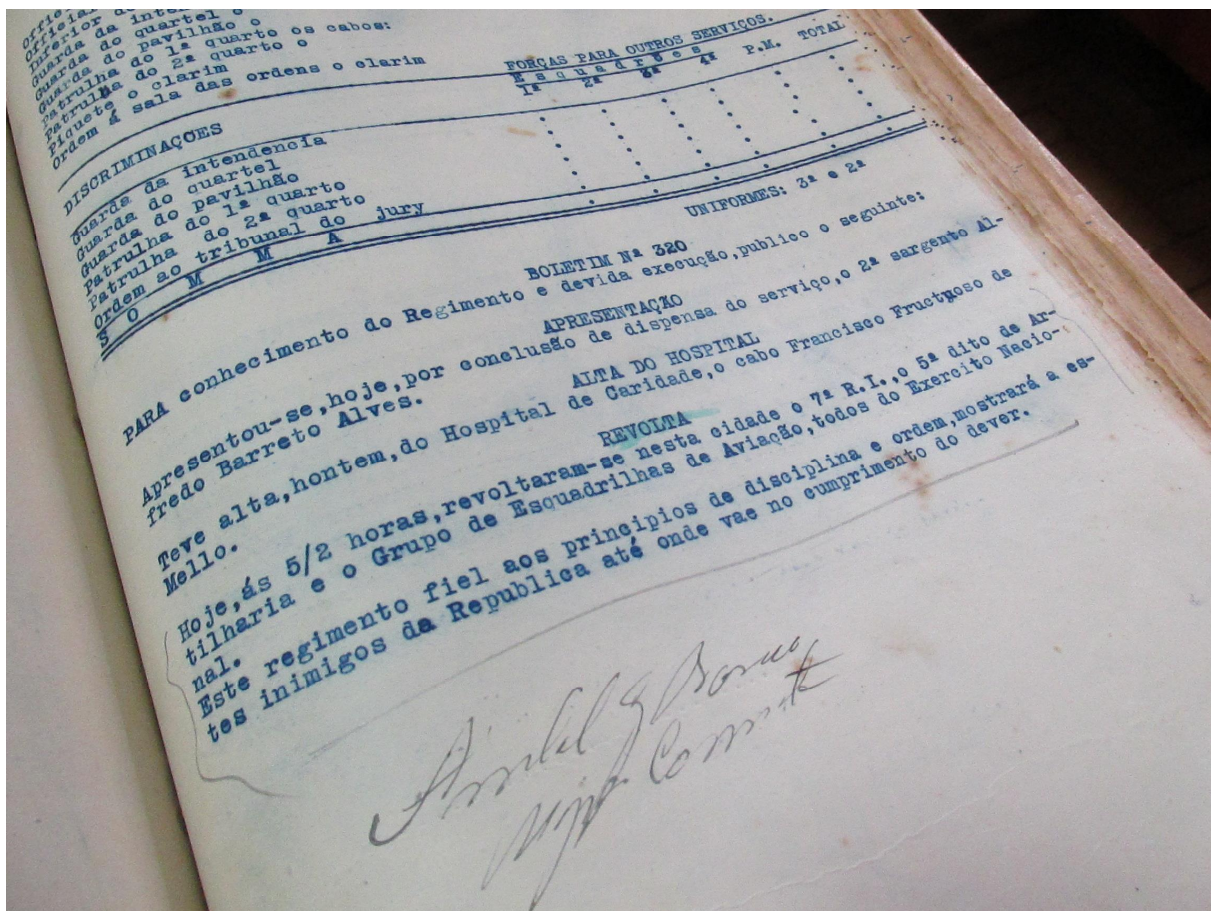 Inferior de
Guarda da inten
Guarda do quartel o
Guarda do pavilhão o
Patrulha do 1ª quarto os cabos:
Patrulha do 2ª quarto o
Piquete o clarim
Ordem á sala das ordens o clarim
FORÇAS PARA OUTROS SERVIÇOS.
DISCRIMINAÇOES
Esquadrões
1ª 2ª 3ª 4ª P.M. TOTAL
Guarda da intendencia
Guarda do quartel
Guarda do pavilhão
Patrulha do 1ª quarto
Patrulha do 2ª quarto
Ordem ao tribunal do jury
S O M M A
UNIFORMES: 3ª e 2ª
BOLETIM Nª 320
PARA conhecimento do Regimento e devida execução,publico o seguinte:
APRESENTAÇÃO
Apresentou-se,hoje,por conclusão de dispensa do serviço,o 2ª sargento Al-
fredo Barreto Alves.
ALTA DO HOSPITAL
Teve alta,hontem,do Hospital de Caridade,o cabo Francisco Fructuoso de
Mello.
REVOLTA
Hoje,ás 5/2 horas,revoltaram-se nesta cidade o 7ª R.I.,o 5ª dito de Ar-
tilharia e o Grupo de Esquadrilhas de Aviação,todos do Exercito Nacio-
nal.
Este regimento fiel aos principios de disciplina e ordem,mostrará a es-
tes inimigos da Republica até onde vae no cumprimento do dever.